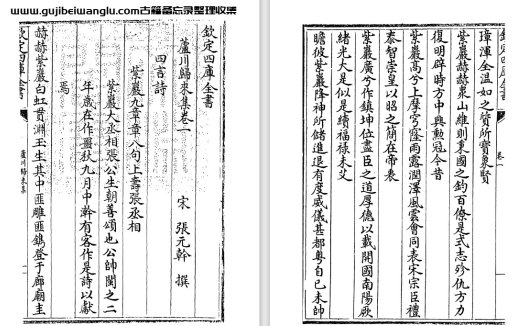 www.gujibeiwanglu.com古籍备忘录整理收集
欽定四庫全書
蘆川歸來集卷一
宋 張元幹 撰
四言詩
紫巖九章章八句上壽張丞相
紫巖大丞相張公生朝善頌也公帥閩之二
年歲在作噩秋九月中澣有客作是詩以獻
焉
赫赫紫巖白虹貫淵玉生其中匪雕匪鐫登于廊廟圭
欽定四庫全書
蘆川歸來集
欽定四庫全書
卷一
璋渾全溫如之質所寶象賢
紫巖赫赫衆山維則秉國之鈞百僚是式志殄仇方力
復明辟時方中興勲冠今昔
紫巖高兮上摩穹窿雨露潤澤風雲會同表宋宗臣禮
泰智崇皇以昭之簡在帝衷
紫巖廣兮作鎮坤位盡臣之道厚德以載開國南陽厥
緒光大是似是續福祿未艾
瞻彼紫巖降神所儲進退有度威儀甚都粵自已未帥